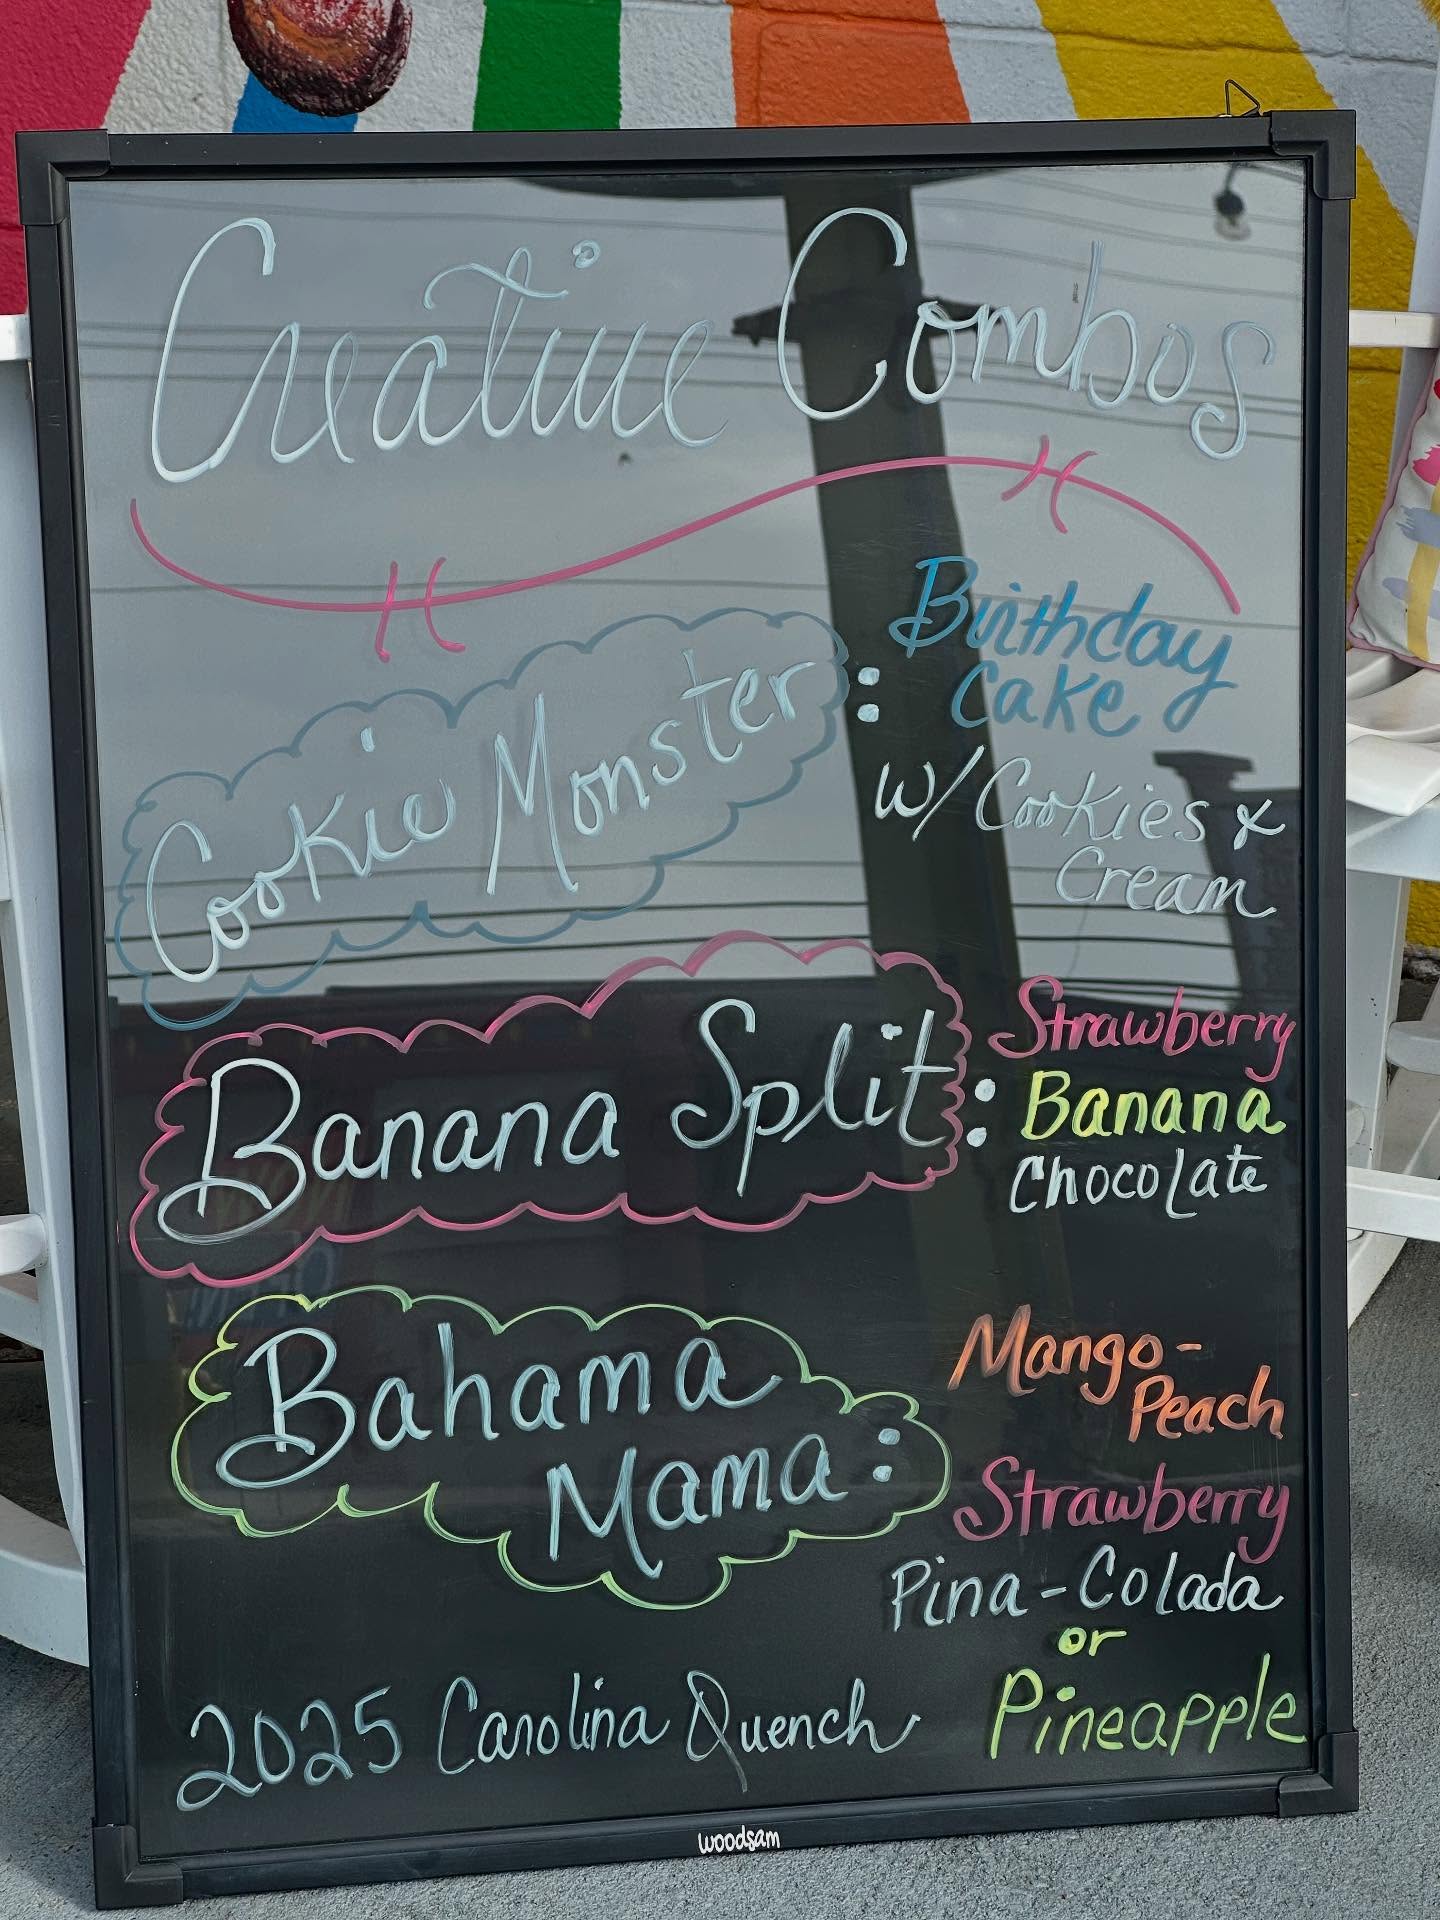 Creative Combos
Cookie Monster :
Birthday
Cake
w/ Cookies &
Cream
Banana Split :
Strawberry
Banana
Chocolate
Bahama
Mama :
Mango-
Peach
Strawberry
Pina-Colada
or
Pineapple
2025 Carolina Quench
woodsam